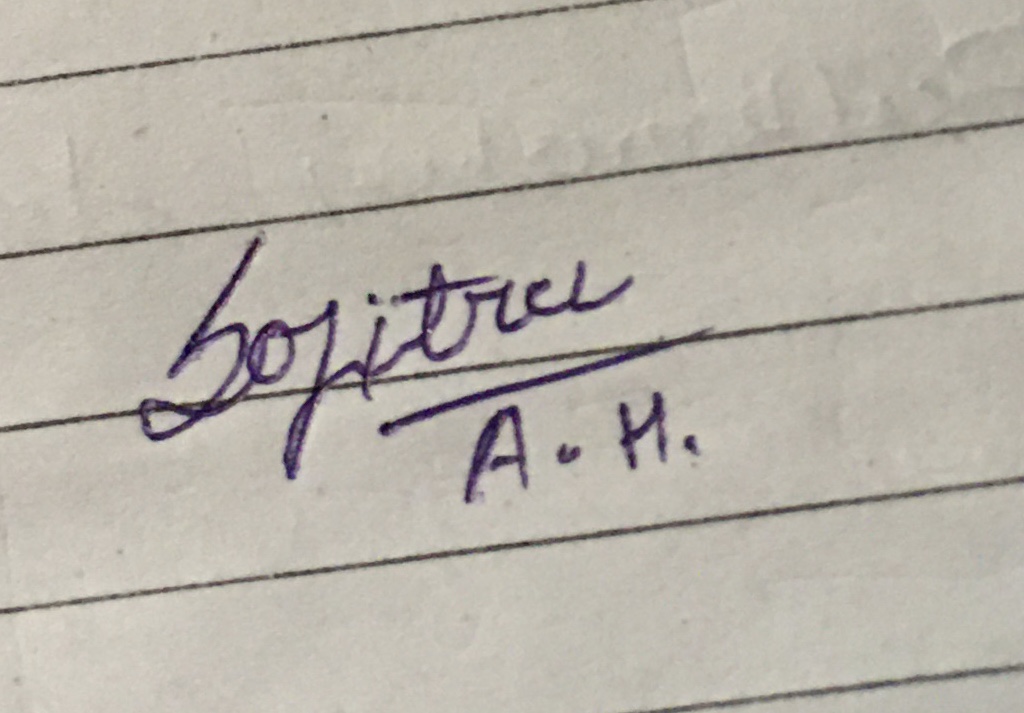 Sojitra
A. H.